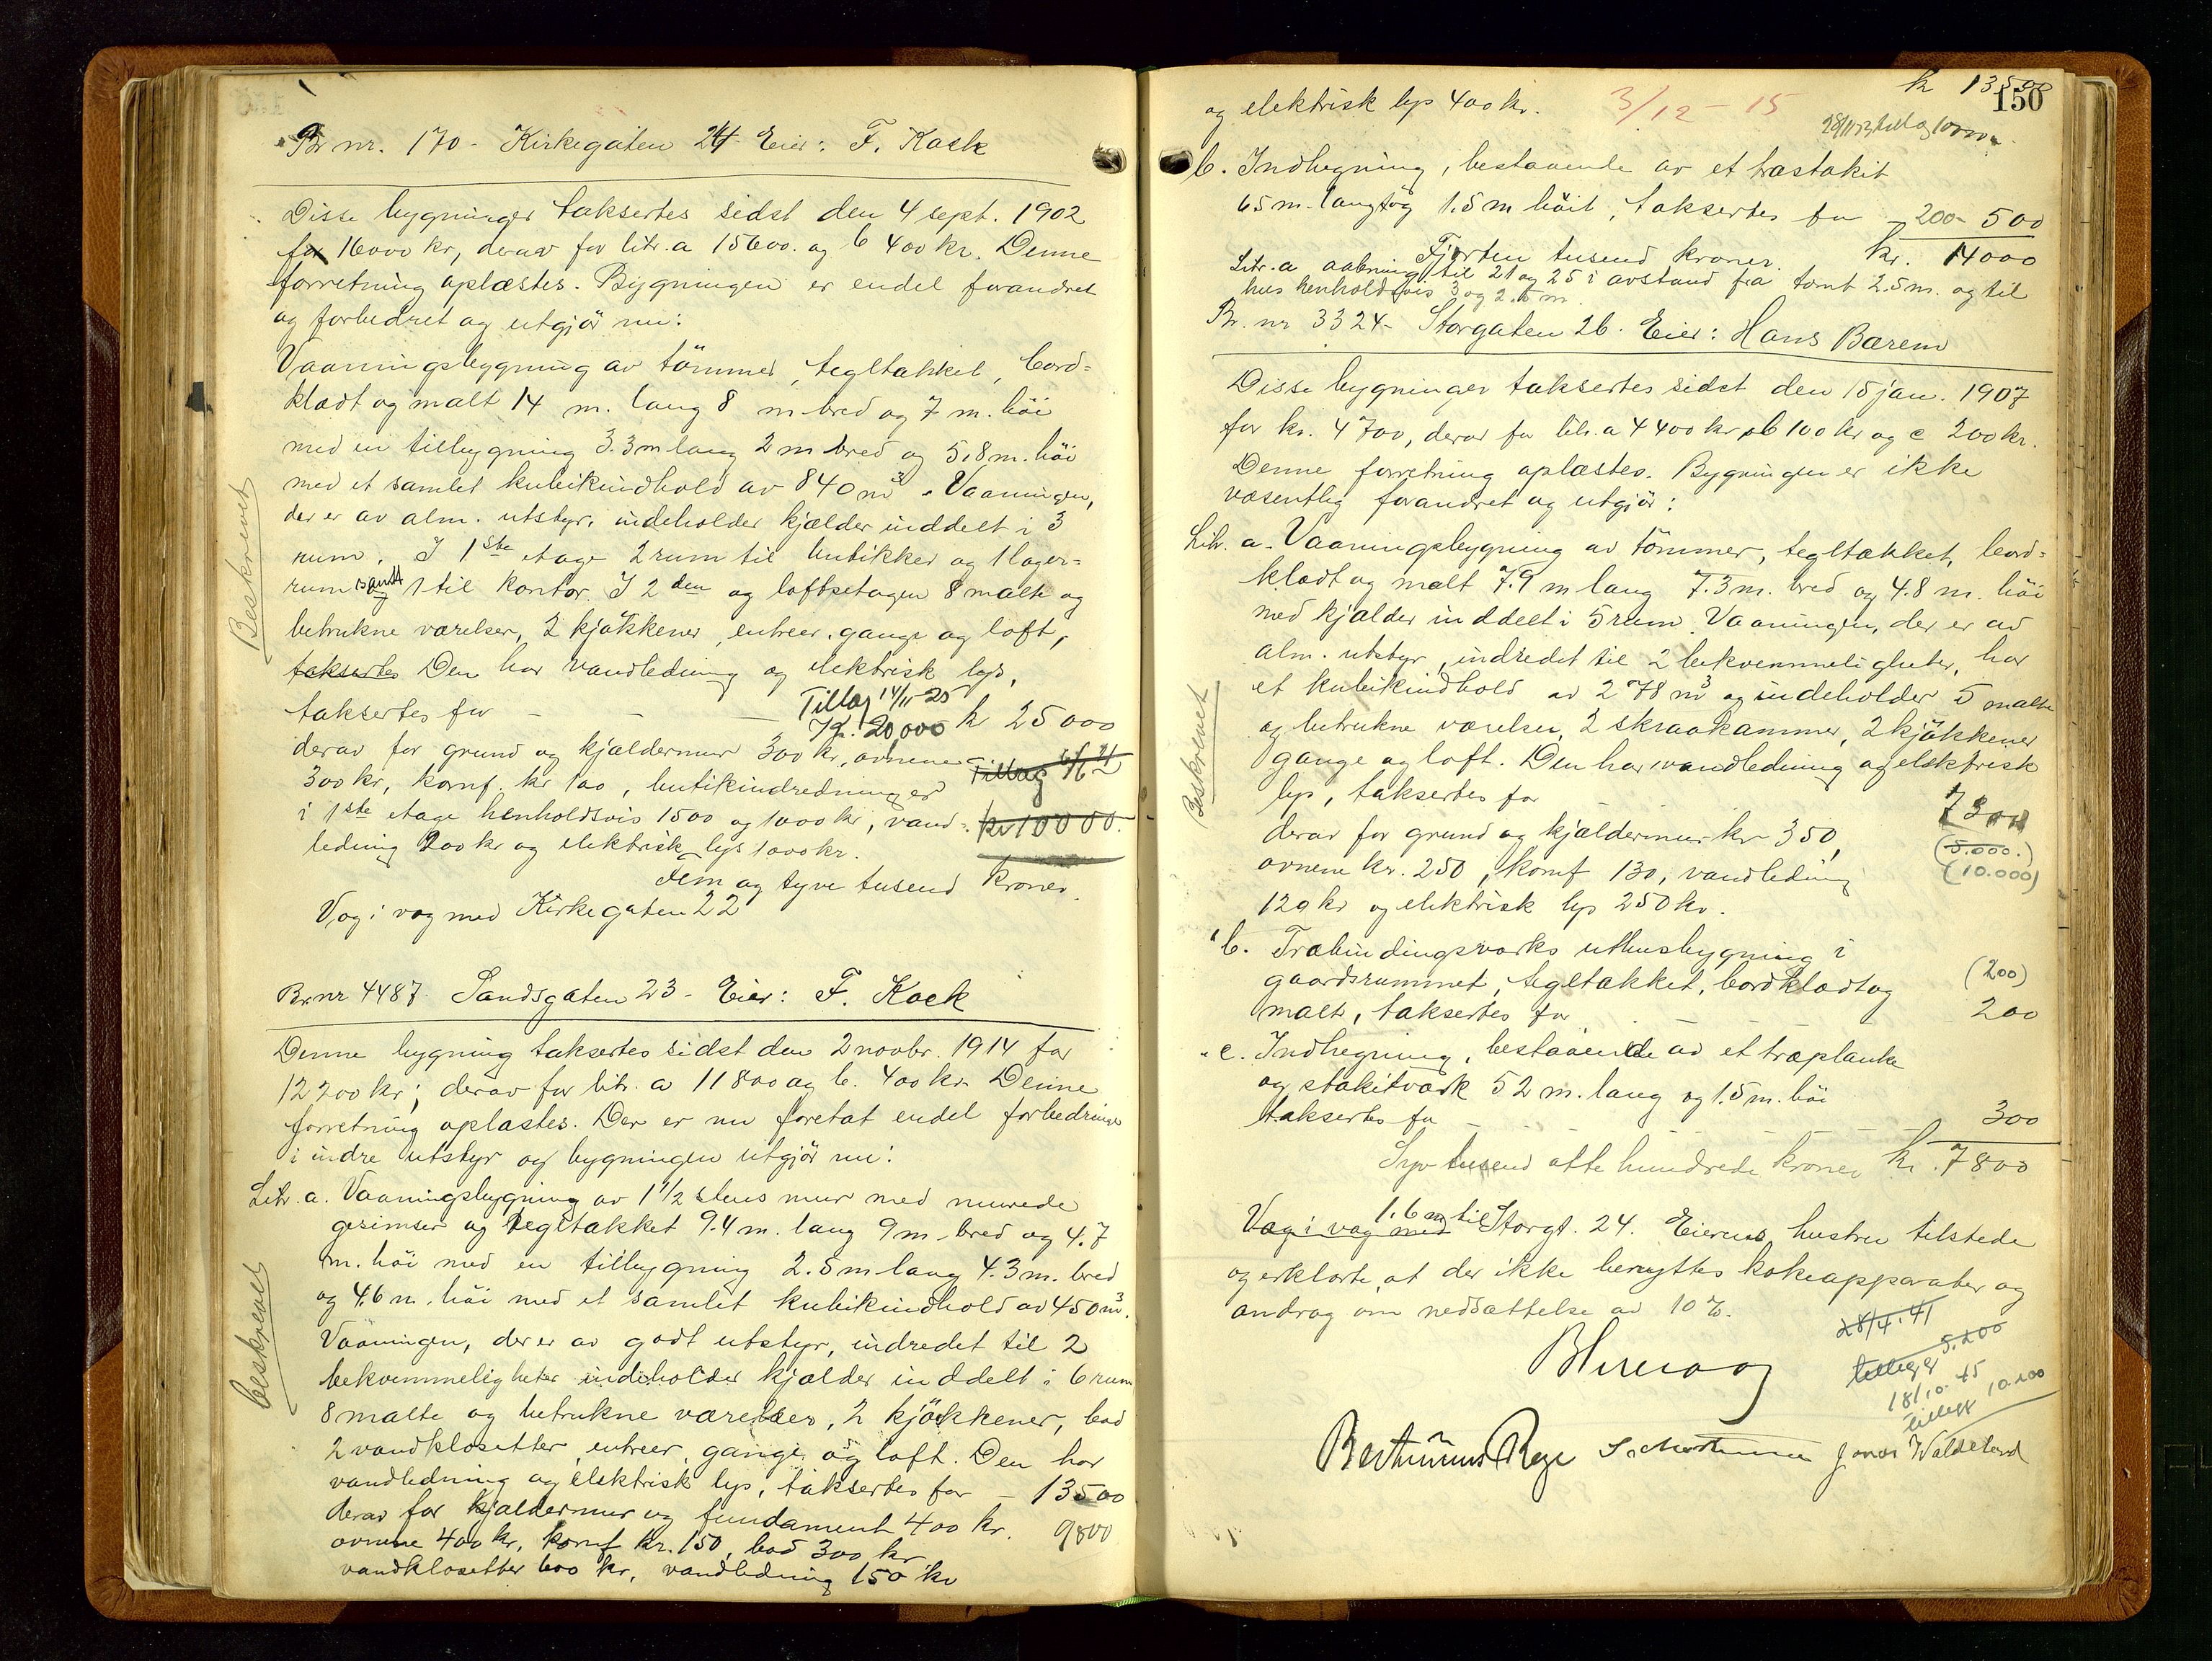 Br nr. 170 - Kirkegaten 24 Eier: F. Kock
Disse bygninger taksertes sidst den 4 sept. 1902
for 16000 kr, derav for litr. a 15600. og b 400 kr. Denne
forretning oplæstes. Bygningen er endel forandret
og forbedret og utgjör nu:
Vaaningsbygning av tömmer, tegltækket, bord=
klædt og malt 14 m. lang 8 m bred og 7 m. höi
med en tilbygning 3.3 m lang 2 m bred og 5.8 m. höi
med et samlet kubikindhold av 840 m³. Vaaningen,
der er av alm. utstyr, indeholder kjælder inddelt i 3
rum. I 1ste etage 2 rum til butikker og 1 lager=
rum samt 1 til kontor. I 2den og loftsetagen 8 malte og
betrukne værelser, 2 kjøkkener, entreer, gange og loft,
taksertes Den har vandledning og elektrisk lys,
Tillæg 14/11 25
taksertes for - - - kr. 20,000 kr 25000
derav for grund og kjældermur 300 kr, ovnene
Tillæg 6/6 21
300 kr, komf. kr 100, butikindredninger
i 1ste etage henholdsvis 1500 og 1000 kr, vand=
kr 10000.
ledning 200 kr og elektrisk lys 1000 kr.
Fem og tyve tusend kroner.
Væg i væg med Kirkegaten 22
Beskrevet
Br. nr 4487. Sandsgaten 23 - Eier: F. Kock
Denne bygning taksertes sidst den 2 novbr. 1914 for
12200 kr; derav for litr. a 11800 og b. 400 kr. Denne
forretning oplæstes. Der er nu foretat endel forbedringer
i indre utstyr og bygningen utgjör nu:
Litr. a. Vaaningsbygning av 1 1/2 stens mur med murede
gesimser og tegltækket 9.4 m. lang 9 m bred og 4.7
m. höi med en tilbygning 2.5 m lang 4.3 m. bred
og 4.6 m. höi med et samlet kubikindhold av 450 m³.
Vaaningen, der er av godt utstyr, indredet til 2
bekvemmeligheter indeholder kjælder inddelt i 6 rum
8 malte og betrukne værelser, 2 kjökkener, bad
2 vandklosetter, entreer, gange og loft. Den har
vandledning og elektrisk lys, taksertes for - 13500
derav for kjældermur og fundament 400 kr. 9800
ovnene 400 kr, komf kr. 150, bad 300 kr
vandklosetter 600 kr, vandledning 150 kr
beskrevet
kr 13500
150
og elektrisk lys 400 kr. 3/12 - 15
b. Indhegning, bestaaende av et træstakit
65 m. langt og 1.5 m höit, taksertes for 200 - 500
Fjorten tusend kroner. kr. 14000
Litr. a aabning til 21 og 25 i avstand fra tomt 2.5 m. og til
hus henholdsvis 3 og 2.5 m.
Br. nr 3324 - Storgaten 26. Eier: Hans Bærem
Disse bygninger taksertes sidst den 15 jan. 1907
for kr. 4700, derav for litr. a 4400 kr, b 100 kr og c 200 kr.
Denne forretning oplæstes. Bygningen er ikke
væsentlig forandret og utgjör:
Litr. a. Vaaningsbygning av tömmer, tegltækket, bord=
klædt og malt 7.9 m lang 7.3 m. bred og 4.8 m. höi
med kjælder inddelt i 5 rum. Vaaningen, der er av
alm. utstyr, indredet til 2 bekvemmeligheter, har
et kubikindhold av 278 m³ og indeholder 5 malte
og betrukne værelser, 2 skraakammer, 2 kjökkener
gange og loft. Den har vandledning og elektrisk
lys, taksertes for 7300
derav for grund og kjældermur kr 350, (5.000.)
ovnene kr. 250, komf 130, vandledning (10.000)
120 kr og elektrisk lys 250 kr.
Beskrevet
" b. Træbindingsværks uthusbygning i
gaardsrummet, tegltækket, bordklædt og (200)
malt, taksertes for - - - 200
" c. Indhegning, bestaaende av et træplanke
og stakitværk 52 m. lang og 1.5 m. höi
taksertes for - - - 300
Syv tusend otte hundrede kroner kr. 7800
1.6 m til
Væg i væg med Storgt. 24. Eierens hustru tilstede
og erklærte, at der ikke benyttes kokeapparater og
androg om nedsættelse av 10 %.
28/4.41
tillegg 5.200
18/10.45
tillegg 10.200
Berthinius Rege Jonas Waldeland